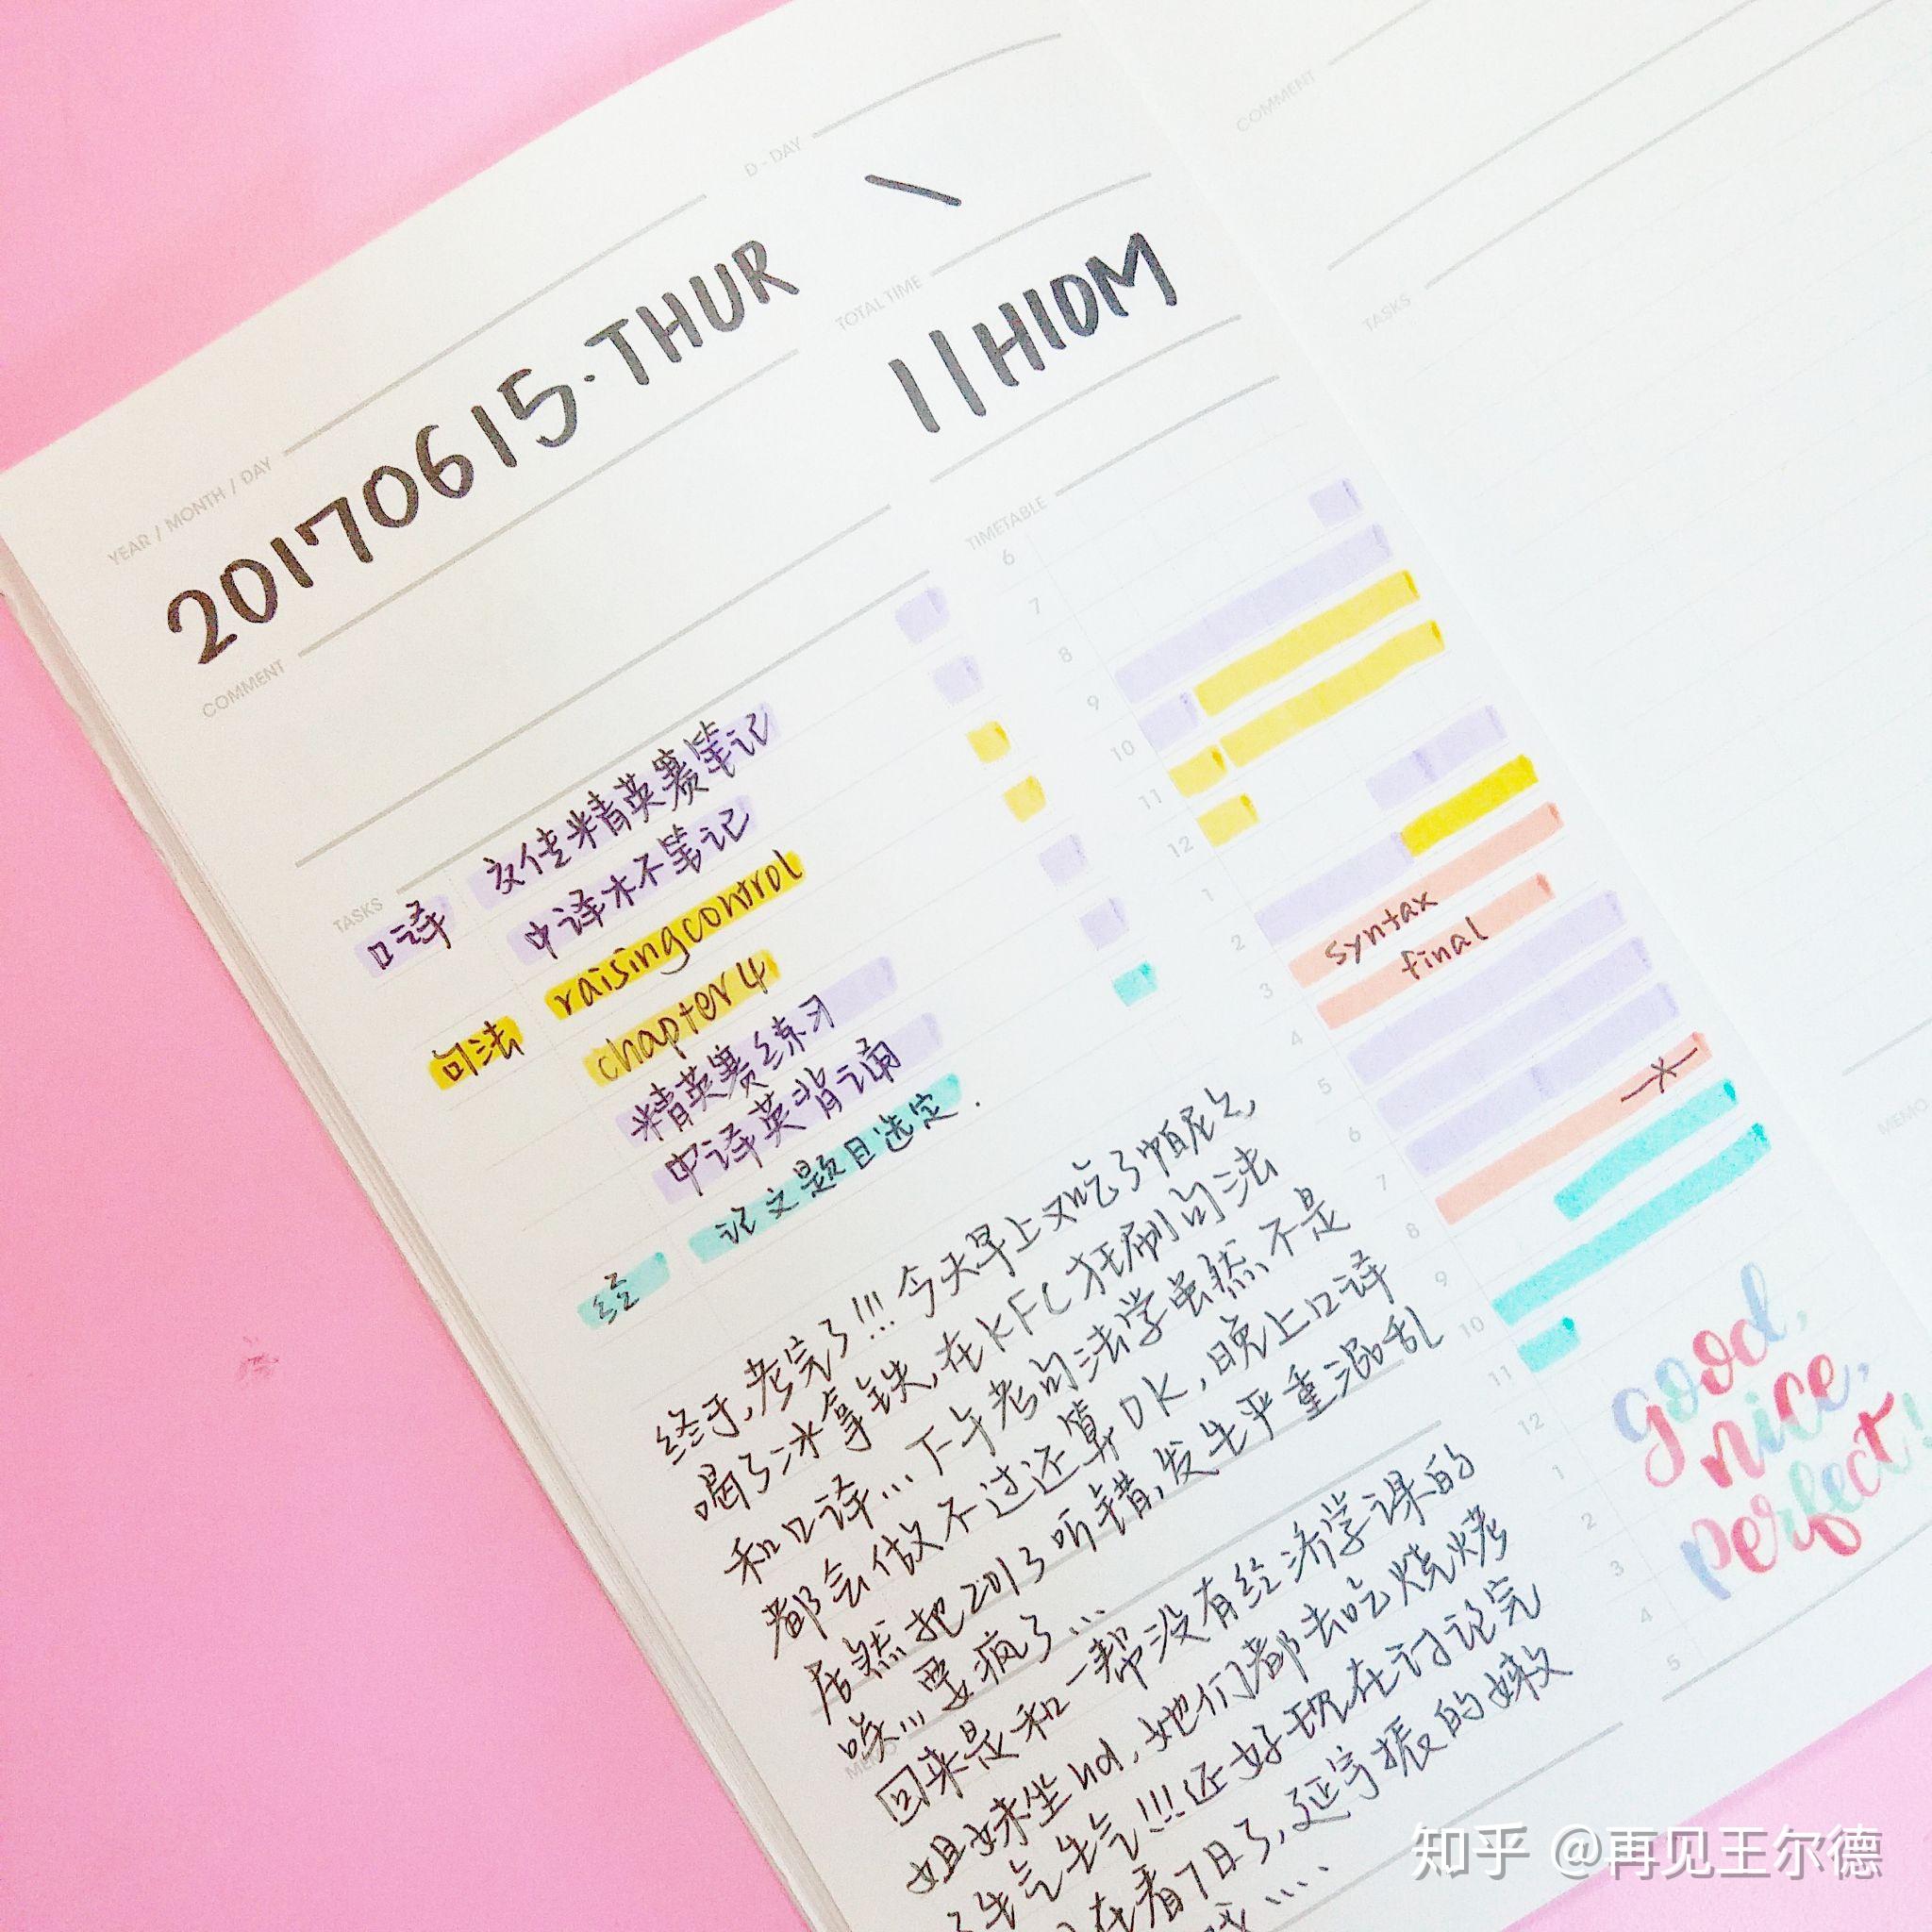 COMMENT
TASKS
MEMO
D-DAY
YEAR / MONTH / DAY
20170615·THUR
TOTAL TIME
11H10M
COMMENT
TIMETABLE
6
7
8
9
10
11
12
1
2
3
4
5
6
7
8
9
10
11
12
1
2
3
4
5
TASKS
口译
交传精英赛笔记
中译木不笔记
句法
raising control
chapter 4
精英赛练习
中译英背诵
经
论文题目选定.
syntax
final
终于,考完了!!!今天早上又吃了帕尼尼,
喝了冰拿铁,在KFC狂刷句法
和口译...下午考句法学虽然不是
都会做不过还算OK,晚上口译
居然把2013听错,发生严重混乱
唉...要疯了...
回来是和一帮没有经济学课的
姐妹坐hd,她们都去吃烧烤
了生气生气!!!还好现在讨论完
在看7日了,延宇振的
good,
nice,
perfect!
知乎 @再见王尔德